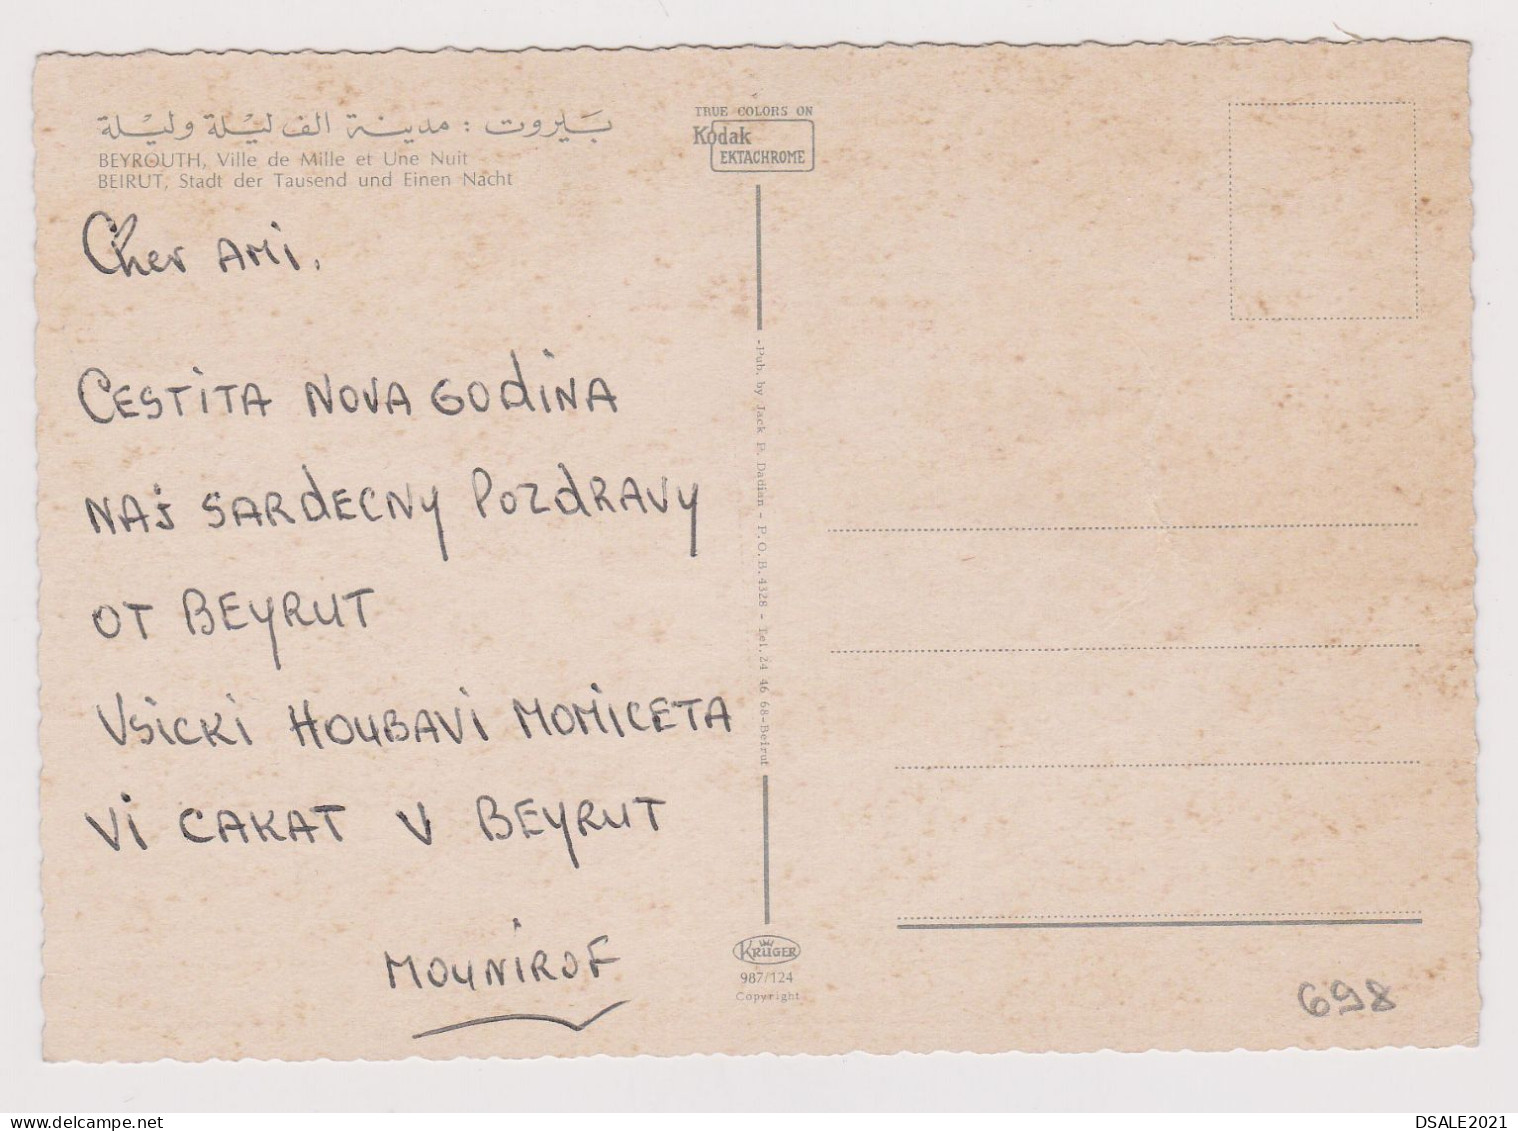 بيروت : مدينة الف ليلة وليلة
BEYROUTH, Ville de Mille et Une Nuit
BEIRUT, Stadt der Tausend und Einen Nacht
Cher AMi.
CESTiTA NOVA GOdiNA
NAj SARdECNy POZdRAVy
OT BEYRUT
VSiCKi HOUBAVi MOMiCETA
Vi CAKAT V BEYRUT
MOUNiROF
TRUE COLORS ON
Kodak
EKTACHROME
-Pub. by Jack P. Dadian - P.O.B. 4328 - Tel. 24 46 68-Beirut
KRÜGER
987/124
Copyright
698
DSALE2021